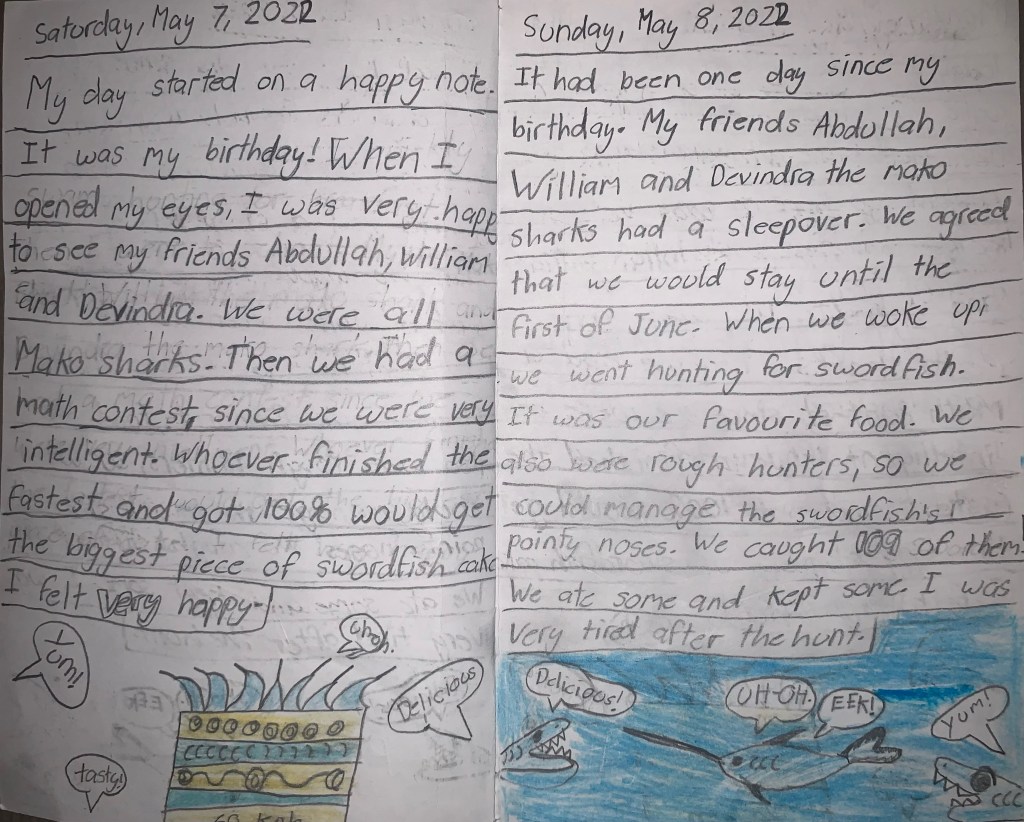 Saturday, May 7, 2022
My day started on a happy note.
It was my birthday! When I
opened my eyes, I was very happ
to see my friends Abdullah, William
and Devindra. We were all
Mako sharks. Then we had a
math contest, since we were very
intelligent. Whoever finished the
fastest and got 100% would get
the biggest piece of swordfish cake
I felt very happy.
Yum!
Uhoh!
Delicious
tasty!
Sunday, May 8, 2022
It had been one day since my
birthday. My friends Abdullah,
William and Devindra the mako
sharks had a sleepover. We agreed
that we would stay until the
first of June. When we woke up,
we went hunting for swordfish.
It was our favourite food. We
also were rough hunters, so we
could manage the swordfish's
pointy noses. We caught 109 of them.
We ate some and kept some. I was
very tired after the hunt.
Delicious!
UH-OH.
EEK!
Yum!